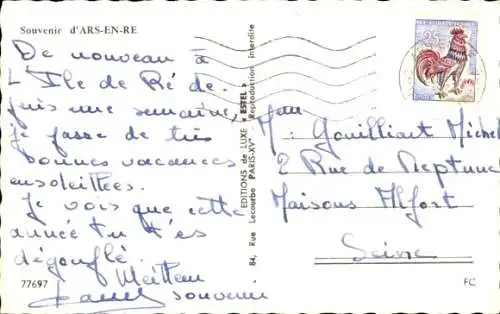 Souvenir d'ARS-EN-RE
De nouveau à
L'Ile de Ré de-
puis une semaine,
je passe de très
bonnes vacances
ensoleillées.
Je vois que cette
année tu t'es
dégonflé.
Meilleur
souvenir
77697
EDITIONS de LUXE « ESTEL »
84, Rue Lecourbe PARIS-XVe
Reproduction interdite
0,25
Gouilliart Michel
2 Rue de Neptune
Maisons Alfort
Seine
FC